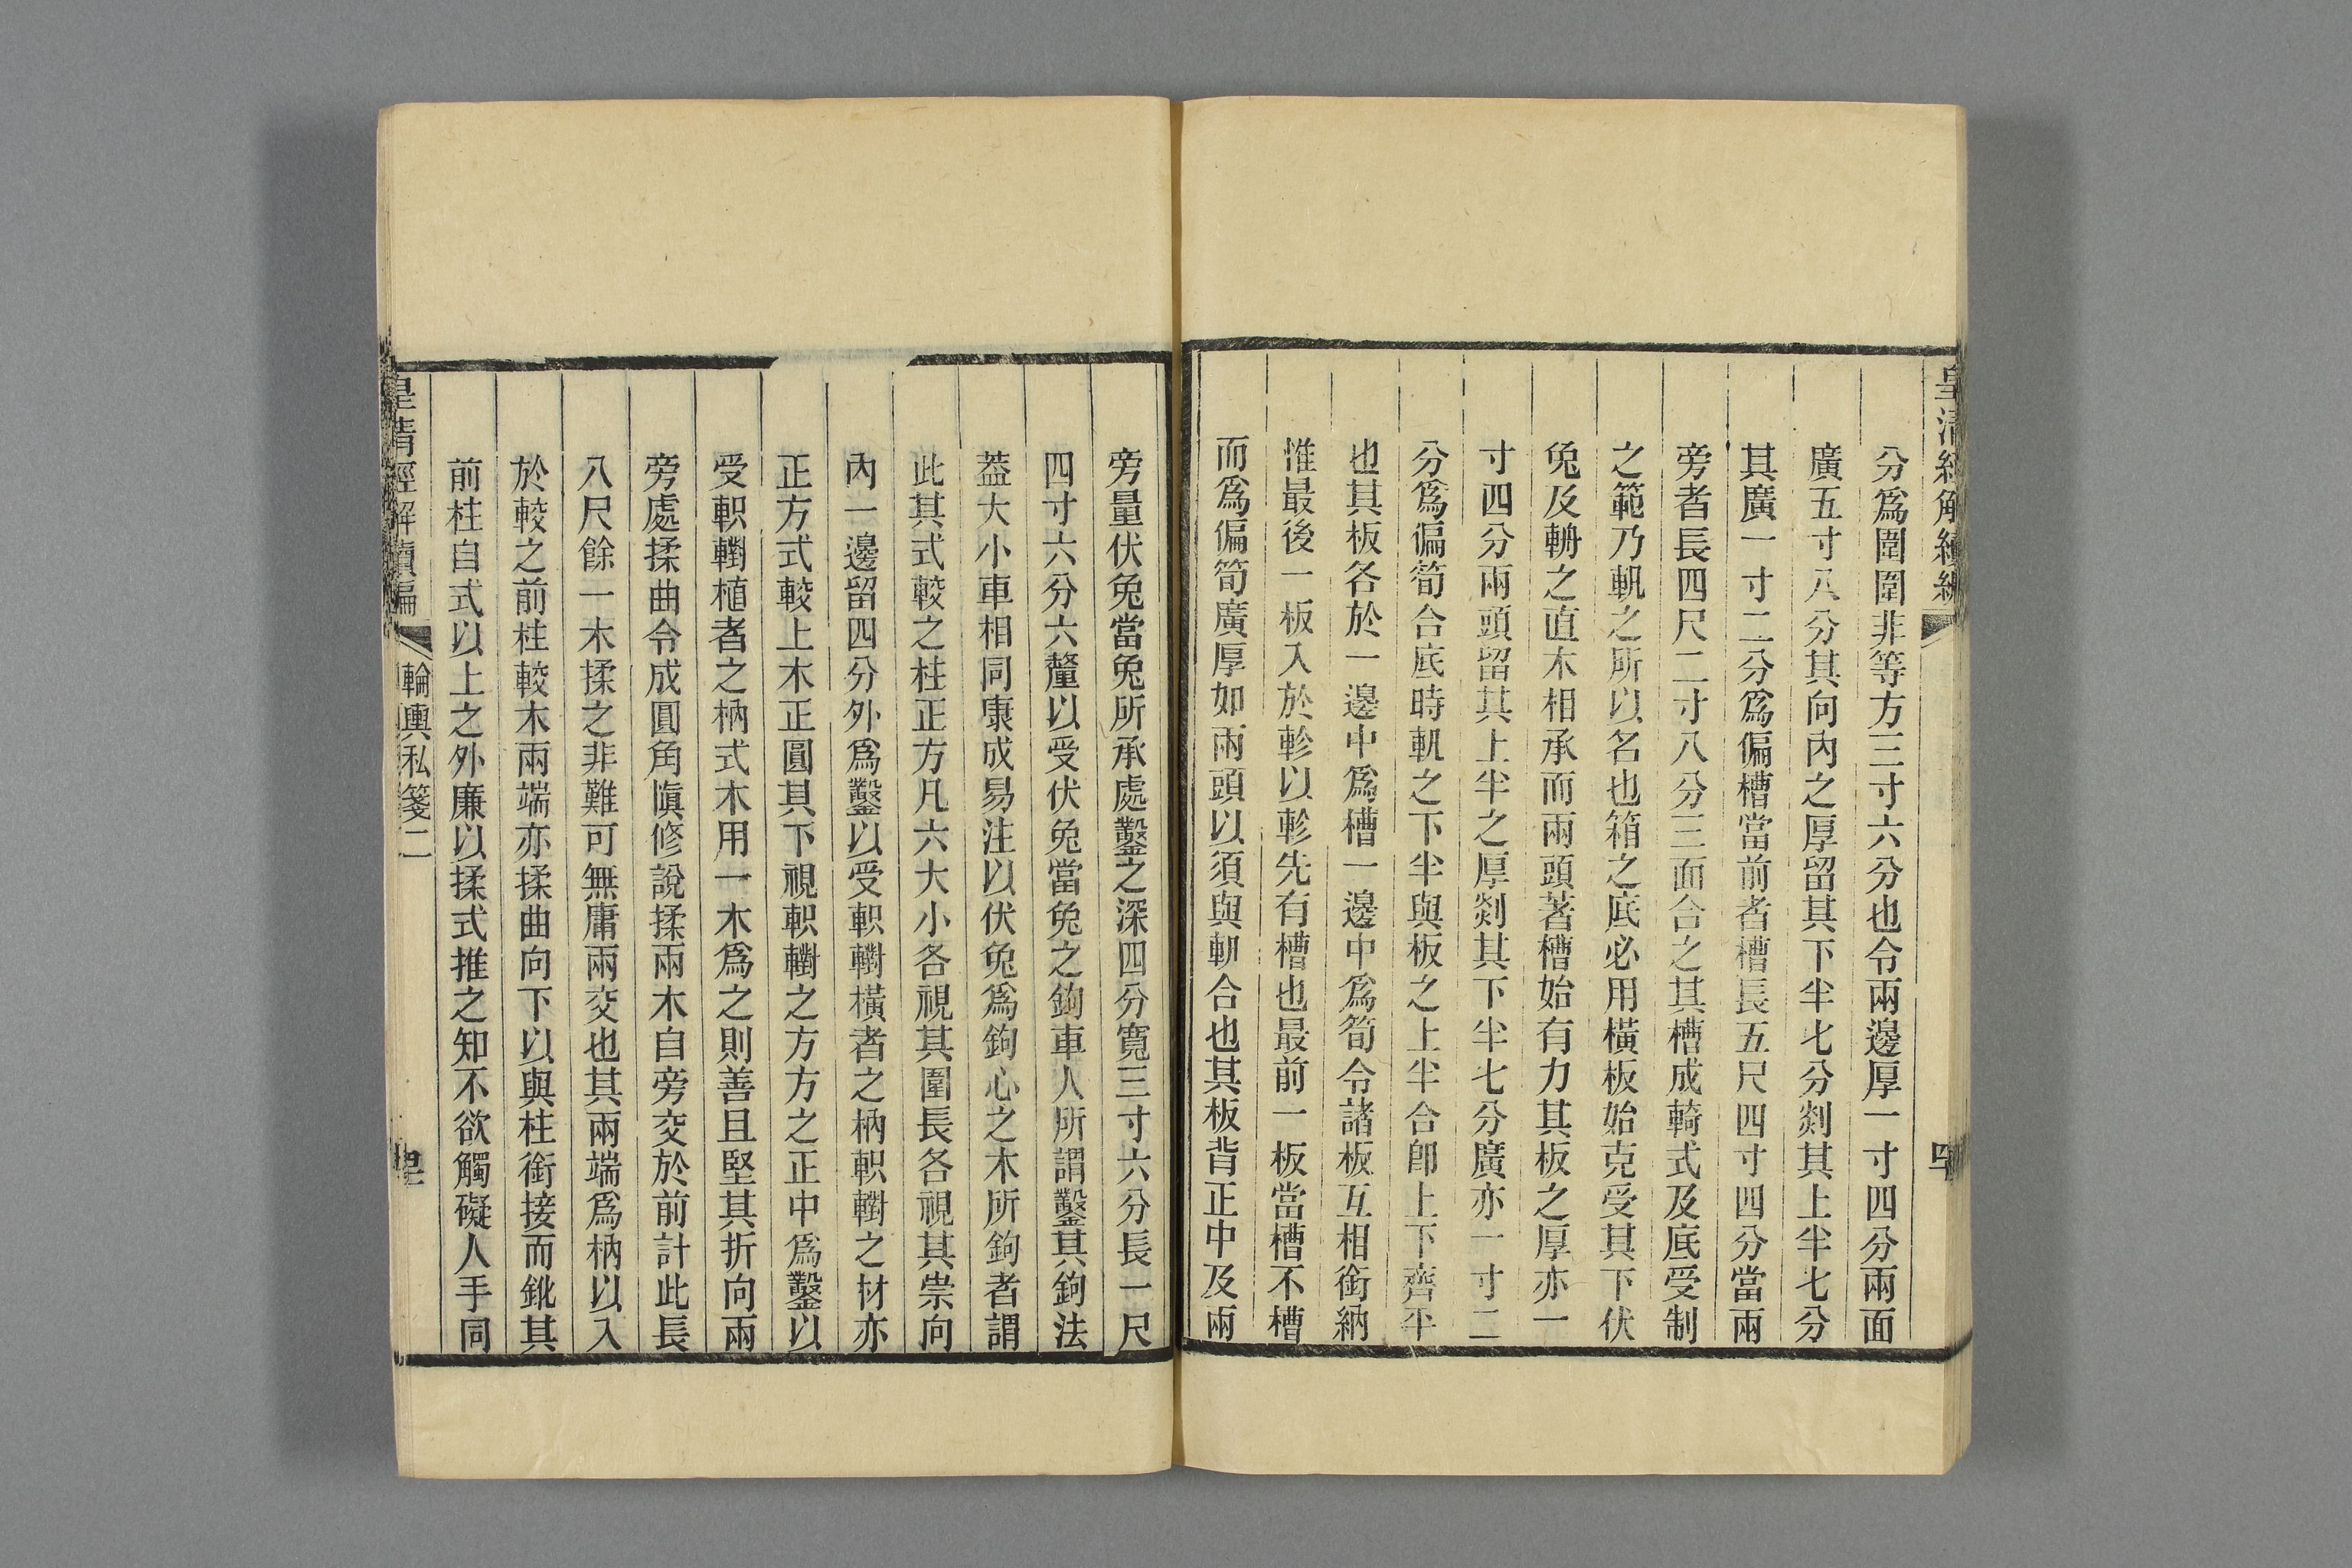 分爲圍圍非等方三寸六分也令兩邊厚一寸四分兩面
廣五寸八分其向內之厚留其下半七分剡其上半七分
其廣一寸二分爲偏槽當前者槽長五尺四寸四分當兩
旁者長四尺二寸八分三面合之其槽成輢式及底受制
之範乃軓之所以名也箱之底必用橫板始克受其下伏
兔及輈之直木相承而兩頭著槽始有力其板之厚亦一
寸四分兩頭留其上半之厚剡其下半七分廣亦一寸二
分爲偏筍合底時軓之下半與板之上半合卽上下齊平
也其板各於一邊中爲槽一邊中爲筍令諸板互相銜納
惟最後一板入於軫以軫先有槽也最前一板當槽不槽
而爲偏筍廣厚如兩頭以須與軓合也其板背正中及兩
旁量伏兔當兔所承處鑿之深四分寬三寸六分長一尺
四寸六分六釐以受伏兔當兔之鉤車人所謂鑿其鉤法
葢大小車相同康成易注以伏兔爲鉤心之木所鉤者謂
此其式較之柱正方凡六大小各視其圍長各視其崇向
內一邊留四分外爲鑿以受軹轛橫者之枘軹轛之材亦
正方式較上木正圓其下視軹轛之方方之正中爲鑿以
受軹轛植者之枘式木用一木爲之則善且堅其折向兩
旁處揉曲令成圓角愼修說揉兩木自旁交於前計此長
八尺餘一木揉之非難可無庸兩交也其兩端爲枘以入
於較之前柱較木兩端亦揉曲向下以與柱銜接而鈋其
前柱自式以上之外廉以揉式推之知不欲觸礙人手同
皇清經解續編
輪輿私箋二